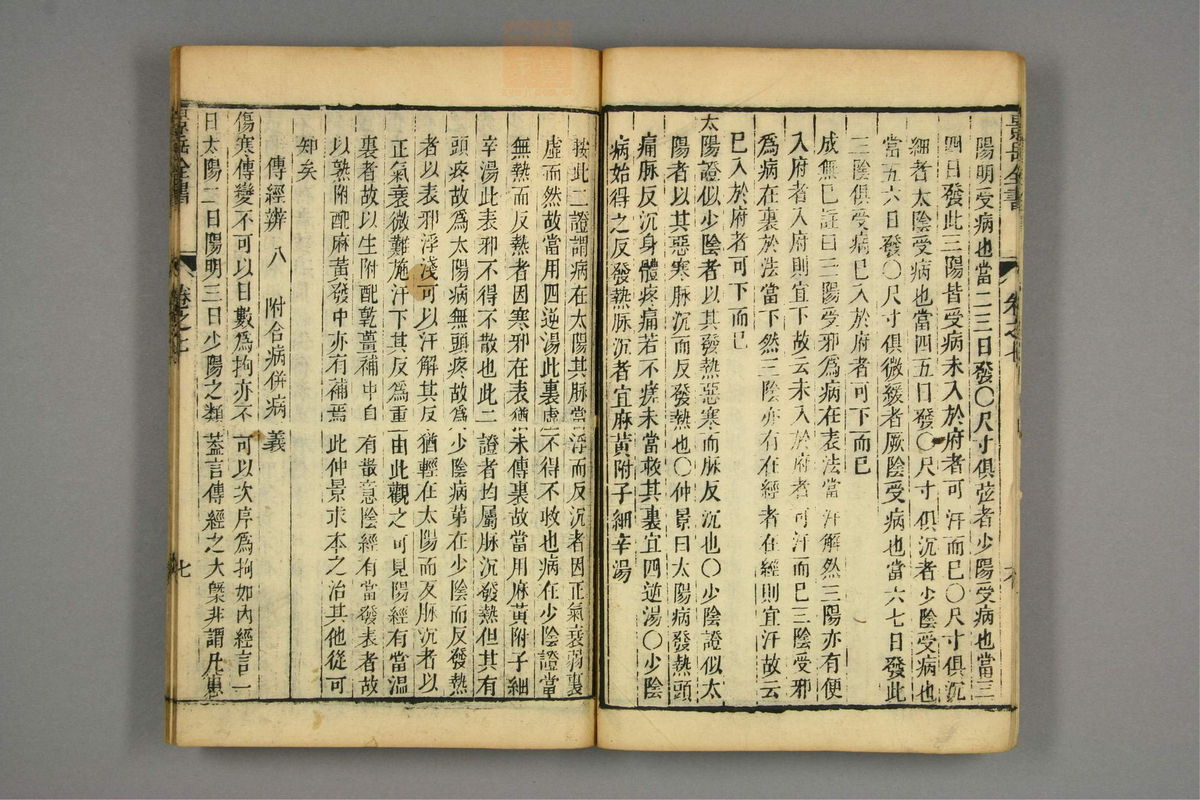 景岳全書
卷之七
陽明受病也當二三日發〇尺寸俱弦者少陽受病也當三
四日發此三陽皆受病未入於府者可汗而已〇尺寸俱沉
細者太陰受病也當四五日發〇尺寸俱沉者少陰受病也
當五六日發〇尺寸俱微緩者厥陰受病也當六七日發此
三陰俱受病已入於府者可下而已
成無巳註曰三陽受邪爲病在表法當汗解然三陽亦有便
入府者入府則宜下故云未入於府者可汗而已三陰受邪
爲病在裏於法當下然三陰亦有在經者在經則宜汗故云
已入於府者可下而已
太陽證似少陰者以其發熱惡寒而脉反沉也〇少陰證似太
陽者以其惡寒脉沉而反發熱也〇仲景曰太陽病發熱頭
痛脉反沉身體疼痛若不瘥未當救其裏宜四逆湯〇少陰
病始得之反發熱脉沉者宜麻黃附子細辛湯
按此二證謂病在太陽其脉當浮而反沉者因正氣衰弱裏
虛而然故當用四逆湯此裏虛不得不收也病在少陰證當
無熱而反熱者因寒邪在表猶未傳裏故當用麻黃附子細
辛湯此表邪不得不散也此二證者均屬脉沉發熱但其有
頭疼故爲太陽病無頭疼故爲少陰病第在少陰而反發熱
者以表邪浮淺可以汗解其反猶輕在太陽而反脉沉者以
正氣衰微難施汗下其反爲重由此觀之可見陽經有當溫
裏者故以生附配乾薑補中自有散意陰經有當發表者故
以熟附配麻黃發中亦有補焉此仲景求本之治其他從可
知矣
傳經辨 八 附合病併病義
傷寒傳變不可以日數爲拘亦不可以次序爲拘如內經言一
日太陽二日陽明三日少陽之類葢言傳經之大槩非謂凡患
景岳全書
卷之七
七